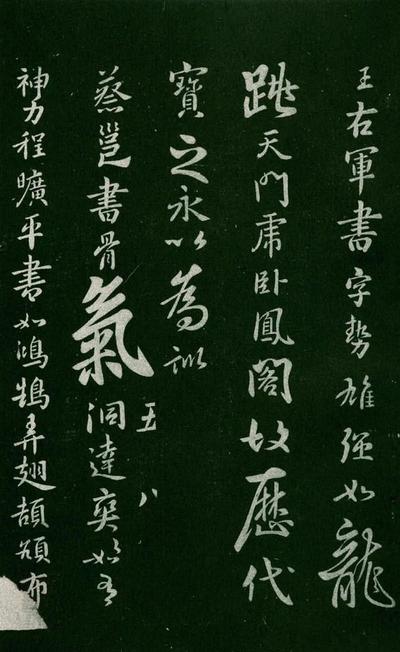 王右軍書字勢雄强如龍
跳天門虎卧鳳閣故歷代
寶之永以為訓
五八
蔡邕書骨氣洞達爽如有
神力程曠平書如鴻鵠弄翅頡頏布